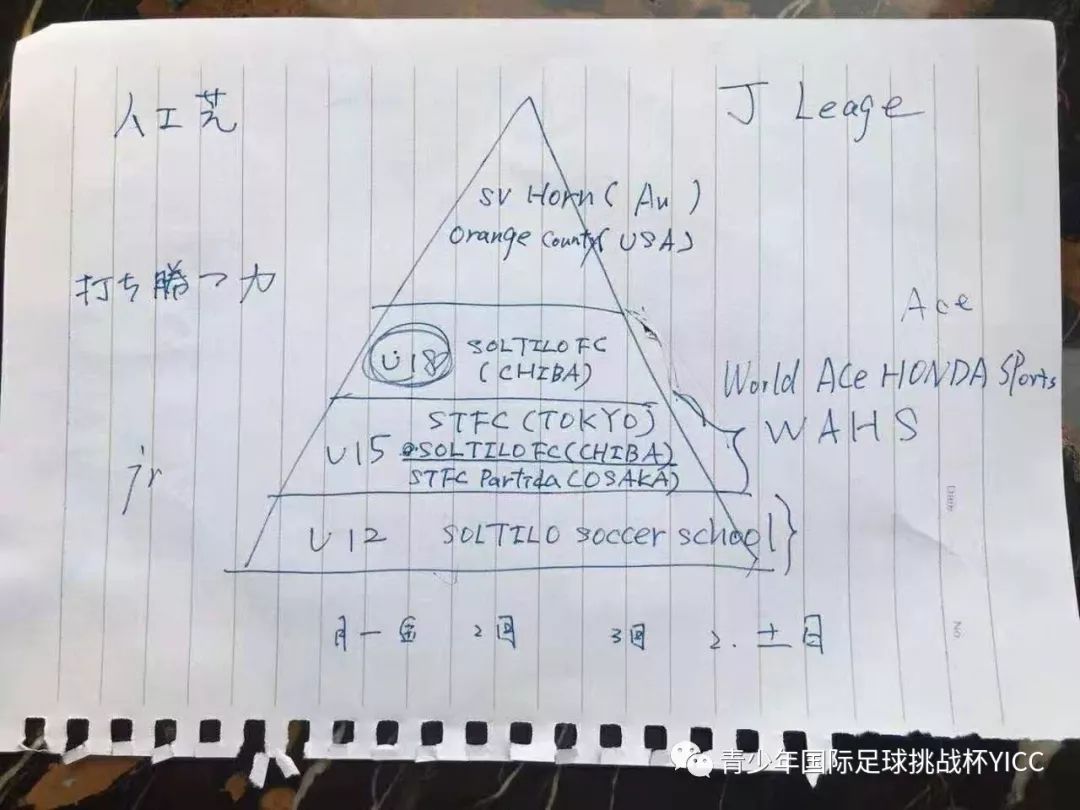 人工芝
J Leage
SV Horn ( Au )
Orange County( USA)
打ち勝つ力
Ace
U18 SOLTILO FC
(CHIBA)
World Ace HONDA Sports
WAHS
STFC (TOKYO)
U15 SOLTILO FC(CHIBA)
STFC Partida(OSAKA)
jr
U12 SOLTILO soccer school
月一金 2回 3回 2. 土日
Date
No.
青少年国际足球挑战杯YICC